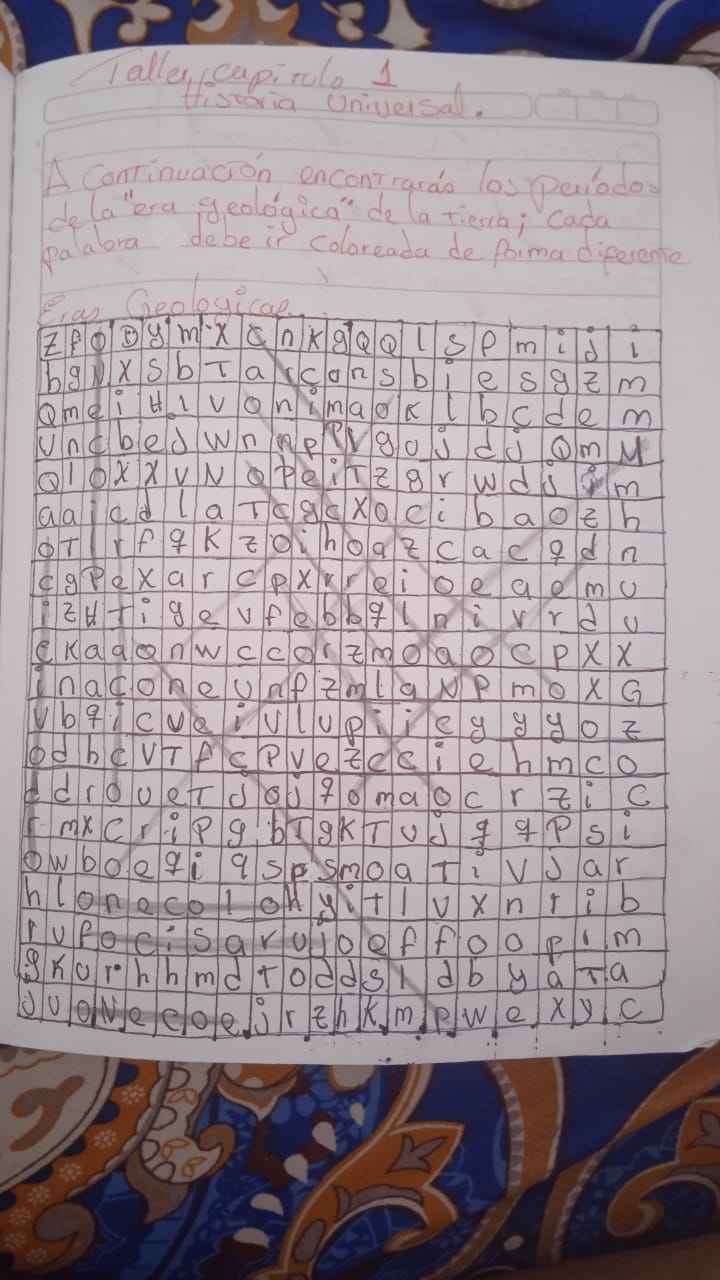 Taller, capitulo 1
Historia Universal.
A Continuación encontrarás los períodos
de la "era geológica" de la tierra; cada
palabra debe ir coloreada de forma diferente
Eras Geologicas
z f o o y m x c n k g Q Q l s p m i j i
b g N x s b T a r c o n s b i e s g z m
Q m e i H l v o n i m a o k l b c d e m
U n c b e J w n n p N g o j d j Q m M
Q l o x x v N o p e i T z g r w d j i m
a a i c d l a T c g c x o c i b a o z h
o T i r f q k z o i h o a z c a c q d n
c g p e x a r c p x r r e i o e a e m u
i z H T i g e v f e b b q l n i v r d u
c k a g o n w c c o r z m o a o c p x x
i n a c o n e u n f z m l a N p m o x G
v b q i c v e i v l u p i i c y y y o z
o d h c v T f c p v e z c c i e h m c o
d d r o v e T J o j q o m a o c r z i c
r m x c r i p g b T g k T u j q q p s i
o w b o e q i q s p s m o a T i v J a r
h l o n e c o l o h y i t l v x n r i b
r u f o c i s a r u j o e f f o o p i m
g k u r h h m d t o d d s l d b y a T a
J u o N e c o e j r z h k m p w e x y c